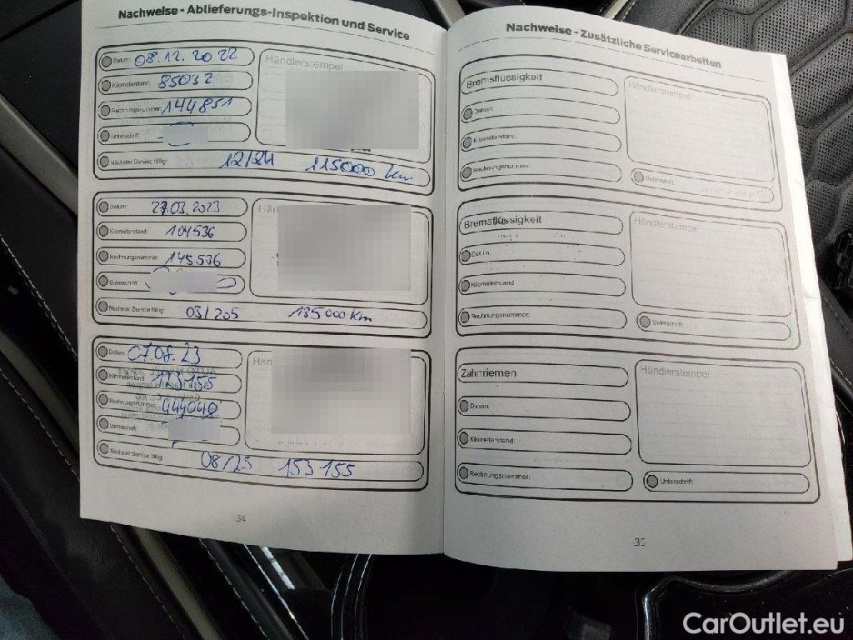 Nachweise - Ablieferungs-Inspektion und Service
Datum: 08.12.2022
Händlerstempel
Kilometerstand: 85032
Rechnungsnummer: 144851
Unterschrift:
Nächster Service fällig: 12/24 115000 km
Datum: 27.03.2023
Hän
Kilometerstand: 104536
Rechnungsnummer: 145536
Unterschrift:
Nächster Service fällig: 03/205 135000 km
Datum: 07.08.23
Hän
Kilometerstand: 123155
Rechnungsnummer:
Unterschrift:
Nächster Service fällig: 08/25 153155
34
Nachweise - Zusätzliche Servicearbeiten
Bremsflüssigkeit
Händlerstempel
Datum:
Kilometerstand:
Rechnungsnummer:
Unterschrift:
Bremsflüssigkeit
Händlerstempel
Datum:
Kilometerstand:
Rechnungsnummer:
Unterschrift:
Zahnriemen
Händlerstempel
Datum:
Kilometerstand:
Rechnungsnummer:
Unterschrift:
CarOutlet.eu